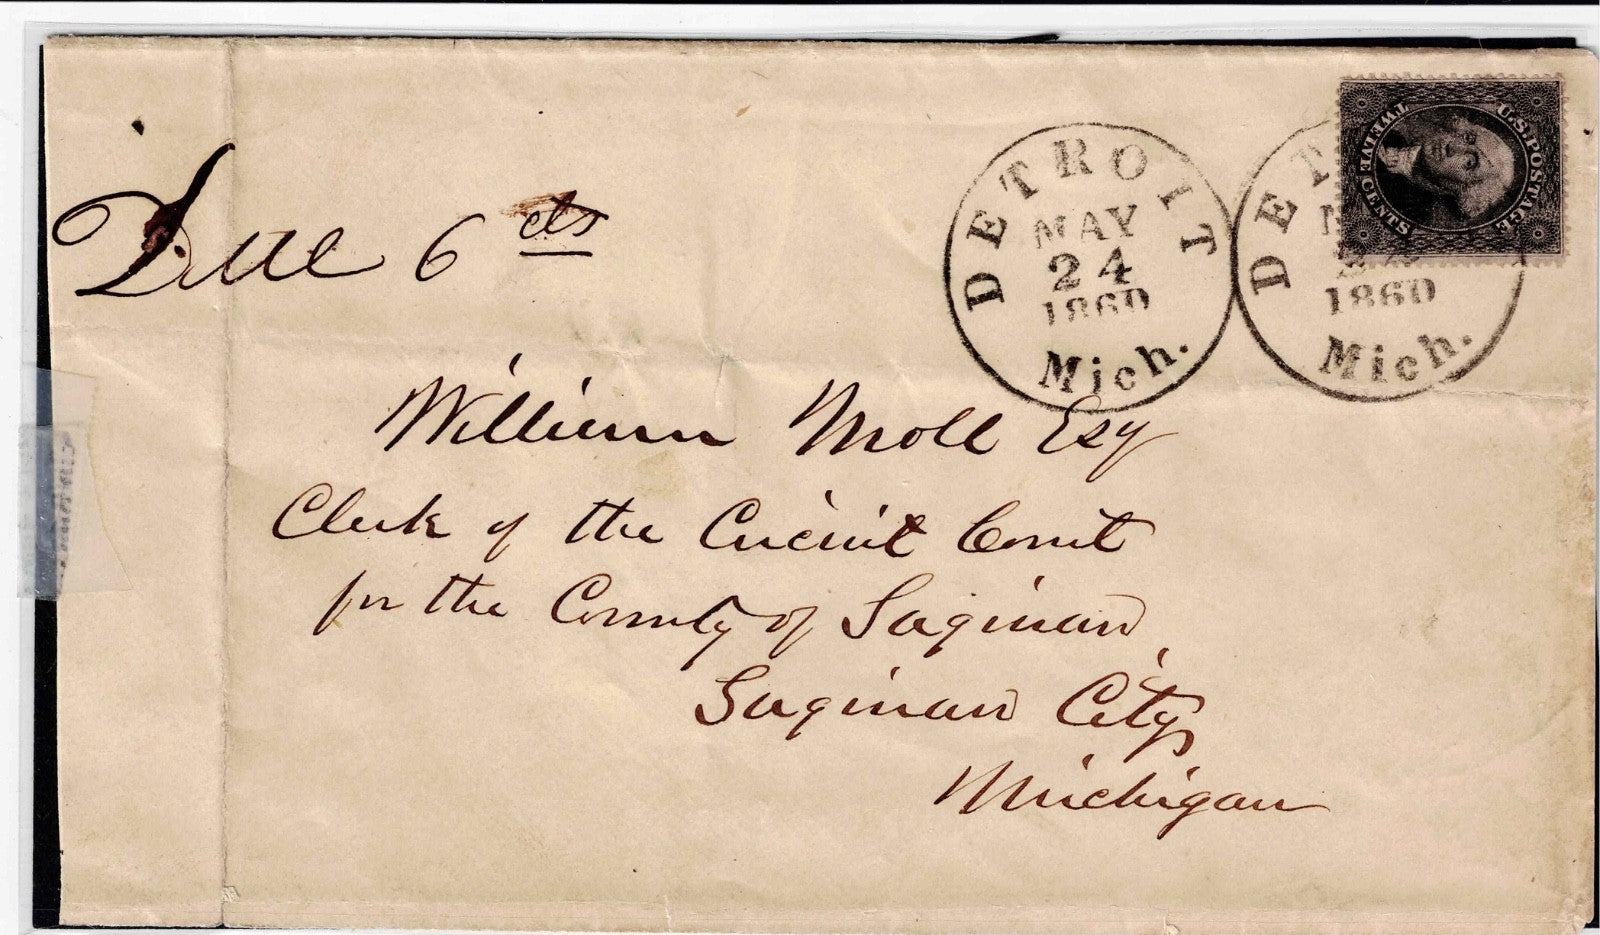 Due 6 cts
DETROIT
MAY
24
1860
Mich.
DET
1860
Mich.
U.S. POSTAGE
TWELVE CENTS
William Moll Esq
Clerk of the Circuit Court
for the County of Saginaw
Saginaw City,
Michigan